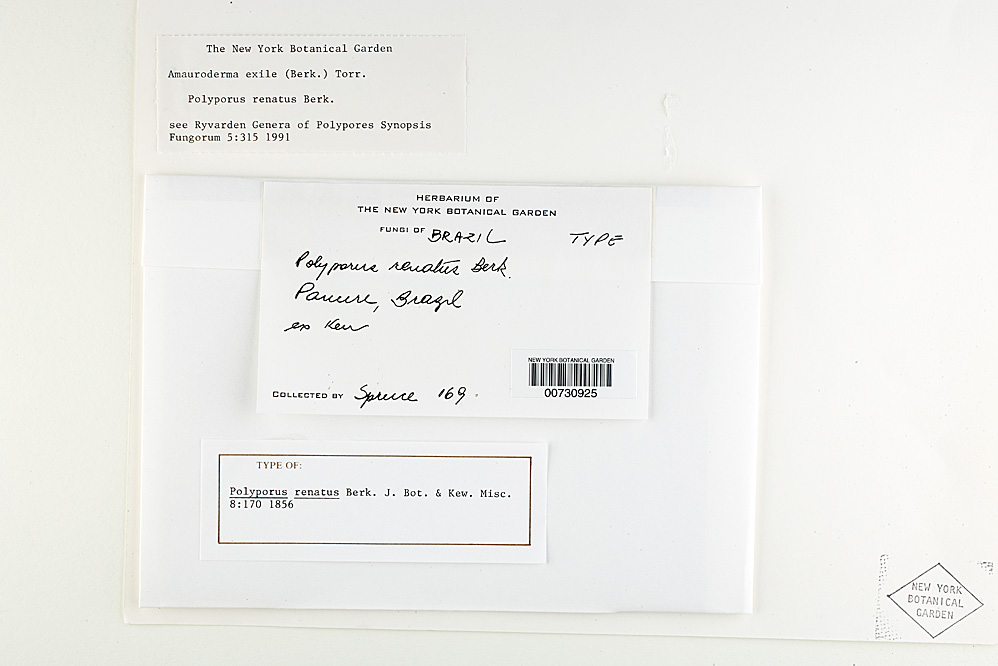 The New York Botanical Garden
Amauroderma exile (Berk.) Torr.
Polyporus renatus Berk.
see Ryvarden Genera of Polypores Synopsis
Fungorum 5:315 1991
HERBARIUM OF
THE NEW YORK BOTANICAL GARDEN
FUNGI OF BRAZIL TYPE
Polyporus renatus Berk.
Panure, Brazil
ex Kew
NEW YORK BOTANICAL GARDEN
00730925
COLLECTED BY Spruce 169.
TYPE OF:
Polyporus renatus Berk. J. Bot. & Kew. Misc.
8:170 1856
NEW YORK
BOTANICAL
GARDEN